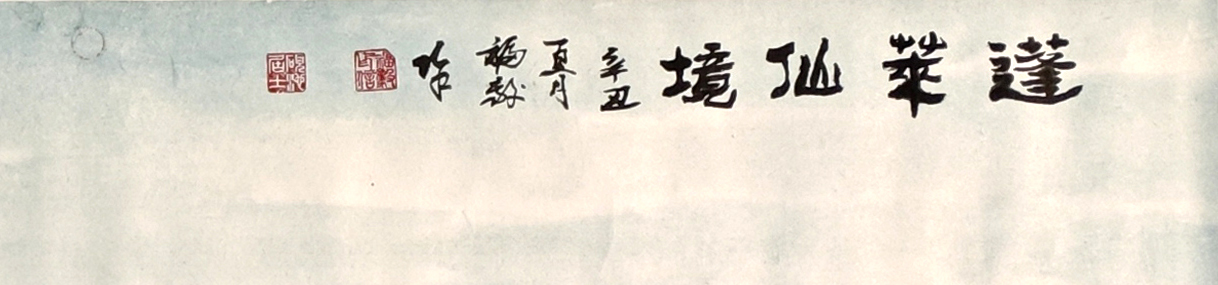 蓬萊仙境
辛丑
夏月
福毅
作